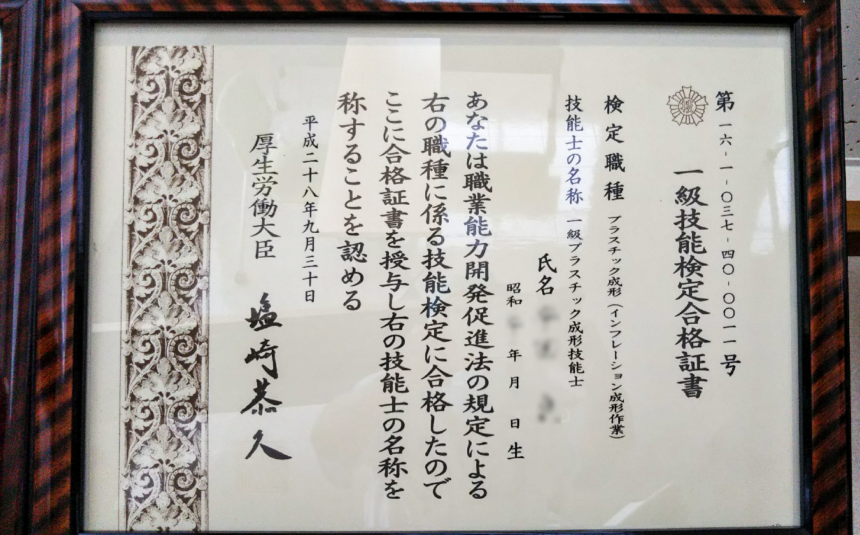 第一六-一-〇三七-四〇-〇〇一一号
一級技能検定合格証書
検定職種 プラスチック成形(インフレーション成形作業)
技能士の名称 一級プラスチック成形技能士
氏名
昭和 年 月 日生
あなたは職業能力開発促進法の規定による
右の職種に係る技能検定に合格したので
ここに合格証書を授与し右の技能士の名称を
称することを認める
平成二十八年九月三十日
厚生労働大臣 塩崎恭久